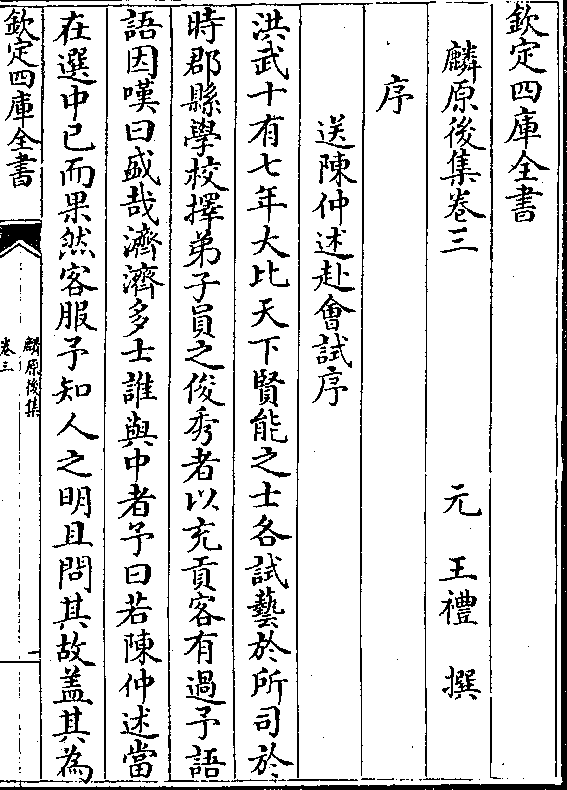 欽定四庫全書
麟原後集卷三
元 王禮 撰
序
送陳仲述赴會試序
洪武十有七年大比天下賢能之士各試藝於所司於
時郡縣學校擇弟子員之俊秀者以充貢客有過予語
語因嘆曰盛哉濟濟多士誰與中者予曰若陳仲述當
在選中已而果然客服予知人之明且問其故盖其為
欽定四庫全書
麟原後集
卷三